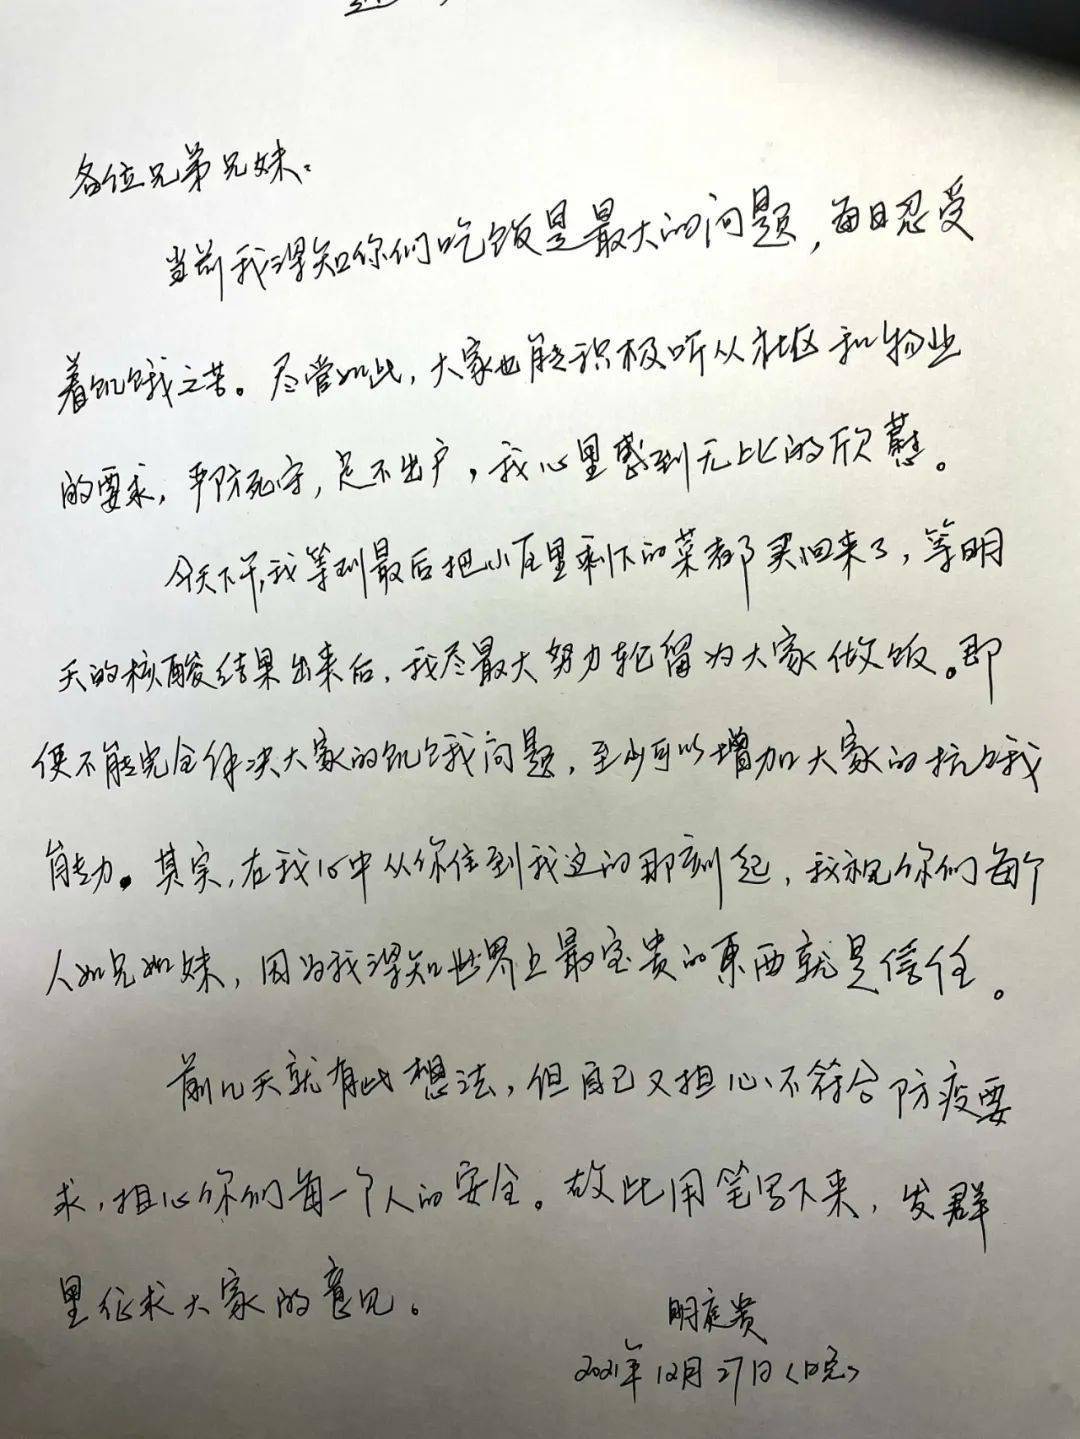 各位兄弟兄妹:
当前我深知你们吃饭是最大的问题,每日忍受
着饥饿之苦。尽管如此,大家也能积极听从社区和物业
的要求,严防死守,足不出户,我心里感到无比的欣慰。
今天下午,我等到最后把小区里剩下的菜都买回来了,等明
天的核酸结果出来后,我尽最大努力轮留为大家做饭。即
便不能完全解决大家的饥饿问题,至少可以增加大家的抗饿
能力。其实,在我心中从你住到我这的那刻起,我视你们每个
人如兄如妹,因为我深知世界上最宝贵的東西就是信任。
前几天就有此想法,但自己又担心不符合防疫要
求,担心你们每一个人的安全。故此用笔写下来,发群
里征求大家的意见。
明庭贵
2021年12月27日(晚)